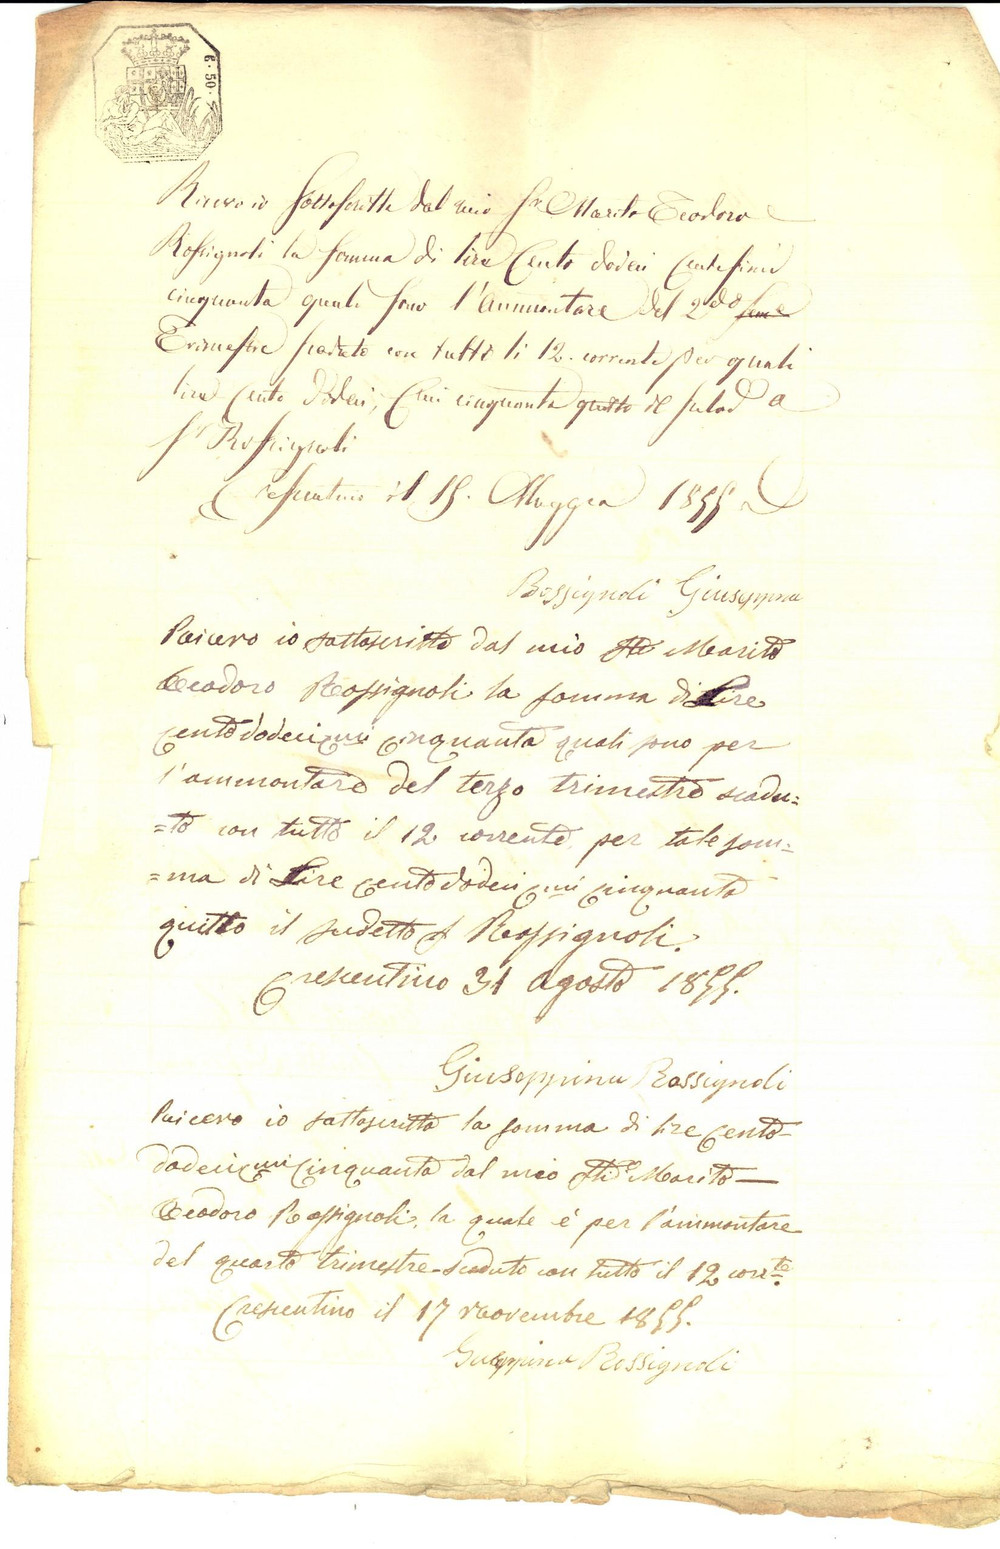 6.50.
Ricevo io Sottoscritta dal mio Sr. Marito Teodoro
Rossignoli la somma di lire Cento dodeci Centesimi
cinquanta quali sono l'ammontare del 2do
Trimestre scaduto con tutto li 12. corrente per quali
lire Cento Dodeci, Cmi cinquanta quitto il sulod
Sr Rossignoli
Crescentino il 15. Maggio 1855
Rossignoli Giuseppina
Ricevo io sottoscritto dal mio Marito
Teodoro Rossignoli la somma di Lire
cento dodeci cmi cinquanta quali sono per
l'ammontare del terzo trimestre scadu=
=to con tutto il 12 corrente per tale som=
=ma di Lire cento dodeci cmi cinquanta
quitto il sudetto Rossignoli.
Crescentino 31 agosto 1855.
Giuseppina Rossignoli
Ricevo io sottoscritto la somma di lire cento-
dodeci cmi cinquanta dal mio Marito
Teodoro Rossignoli, la quale è per l'ammontare
del quarto trimestre scaduto con tutto il 12 corr.te
Crescentino il 17 Novembre 1855.
Giuseppina Rossignoli